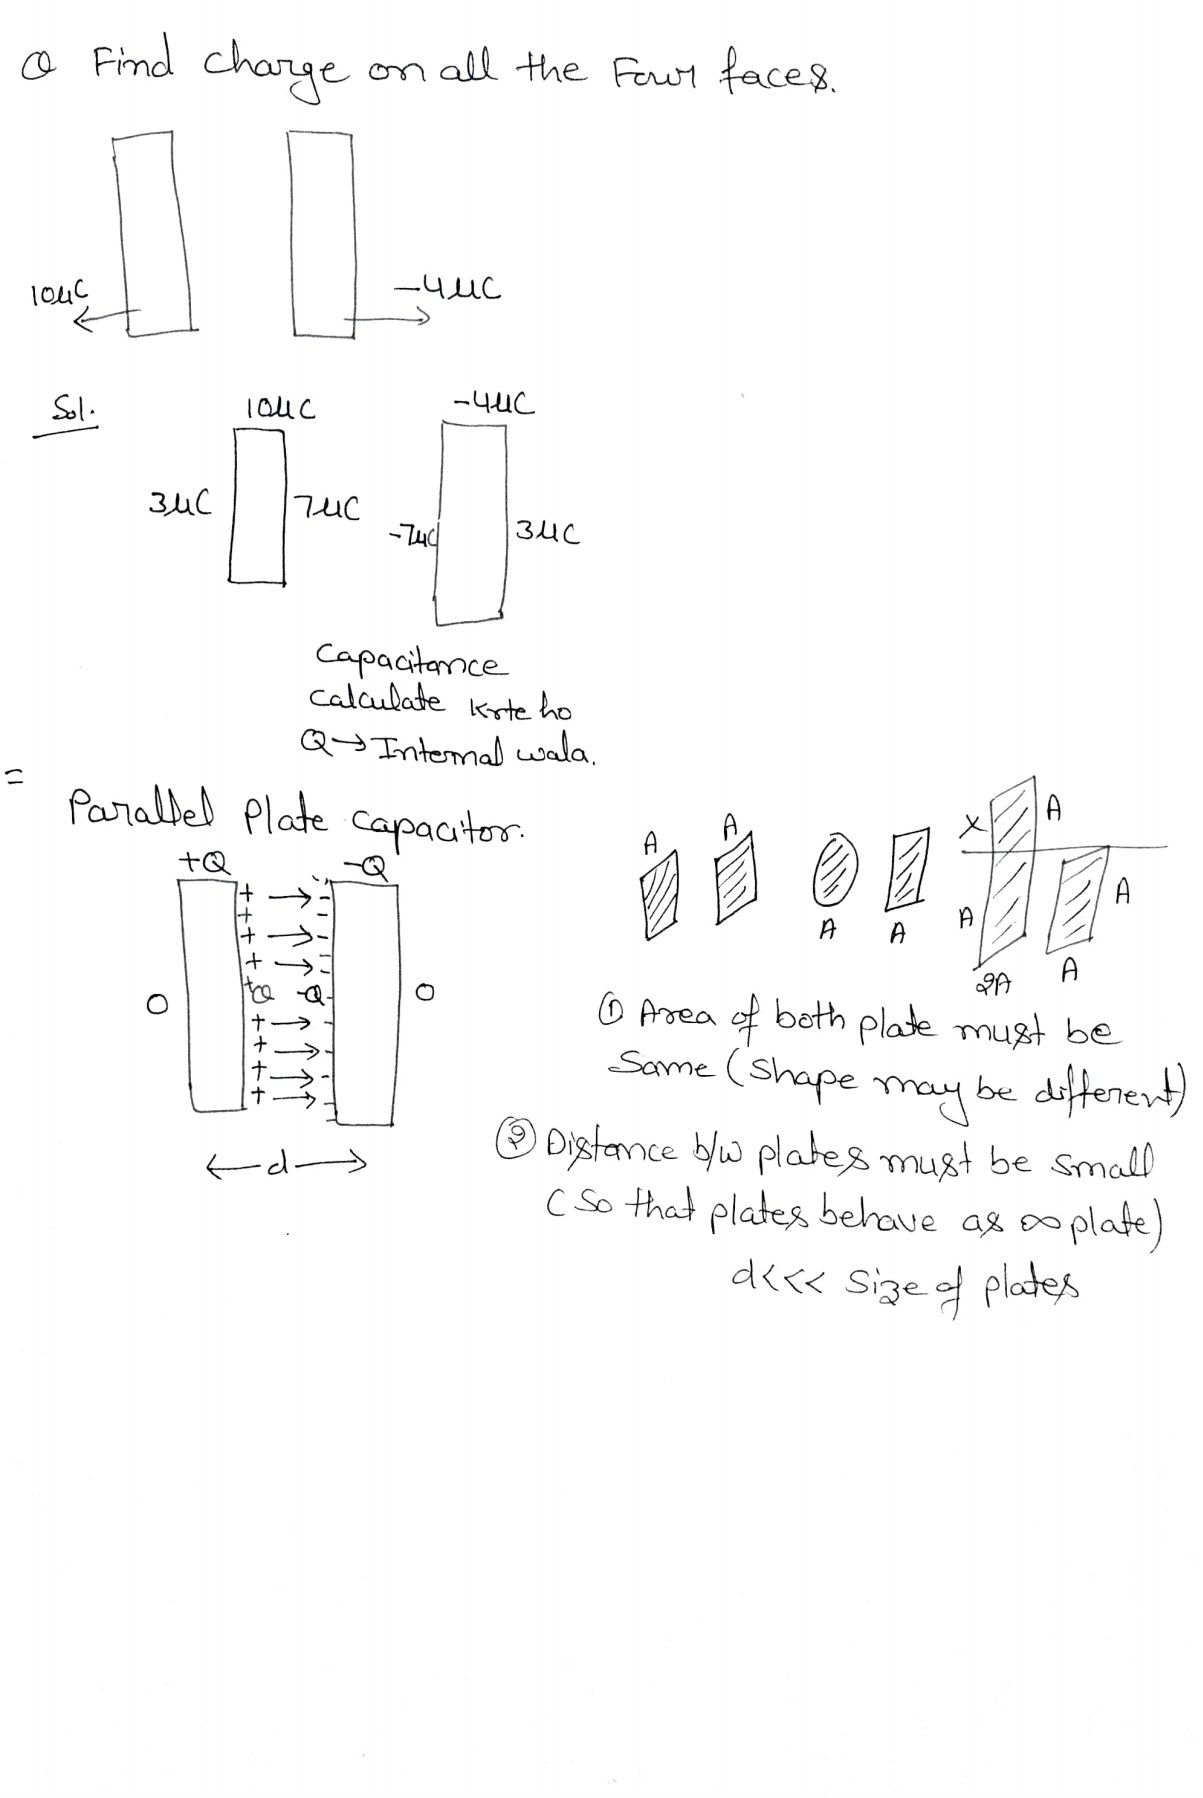 Q Find charge on all the Four faces.
10µC
-4µC
Sol.
10µC
-4µC
3µC
7µC
-7µC
3µC
Capacitance
calculate krte ho
Q→Internal wala.
=
Parallel Plate capacitor.
+Q
-Q
0
+Q
-Q
0
←d→
A
A
A
A
X
A
A
2A
A
A
① Area of both plate must be
Same (Shape may be different)
② Distance b/w plates must be small
(So that plates behave as ∞ plate)
d<<< Size of plates